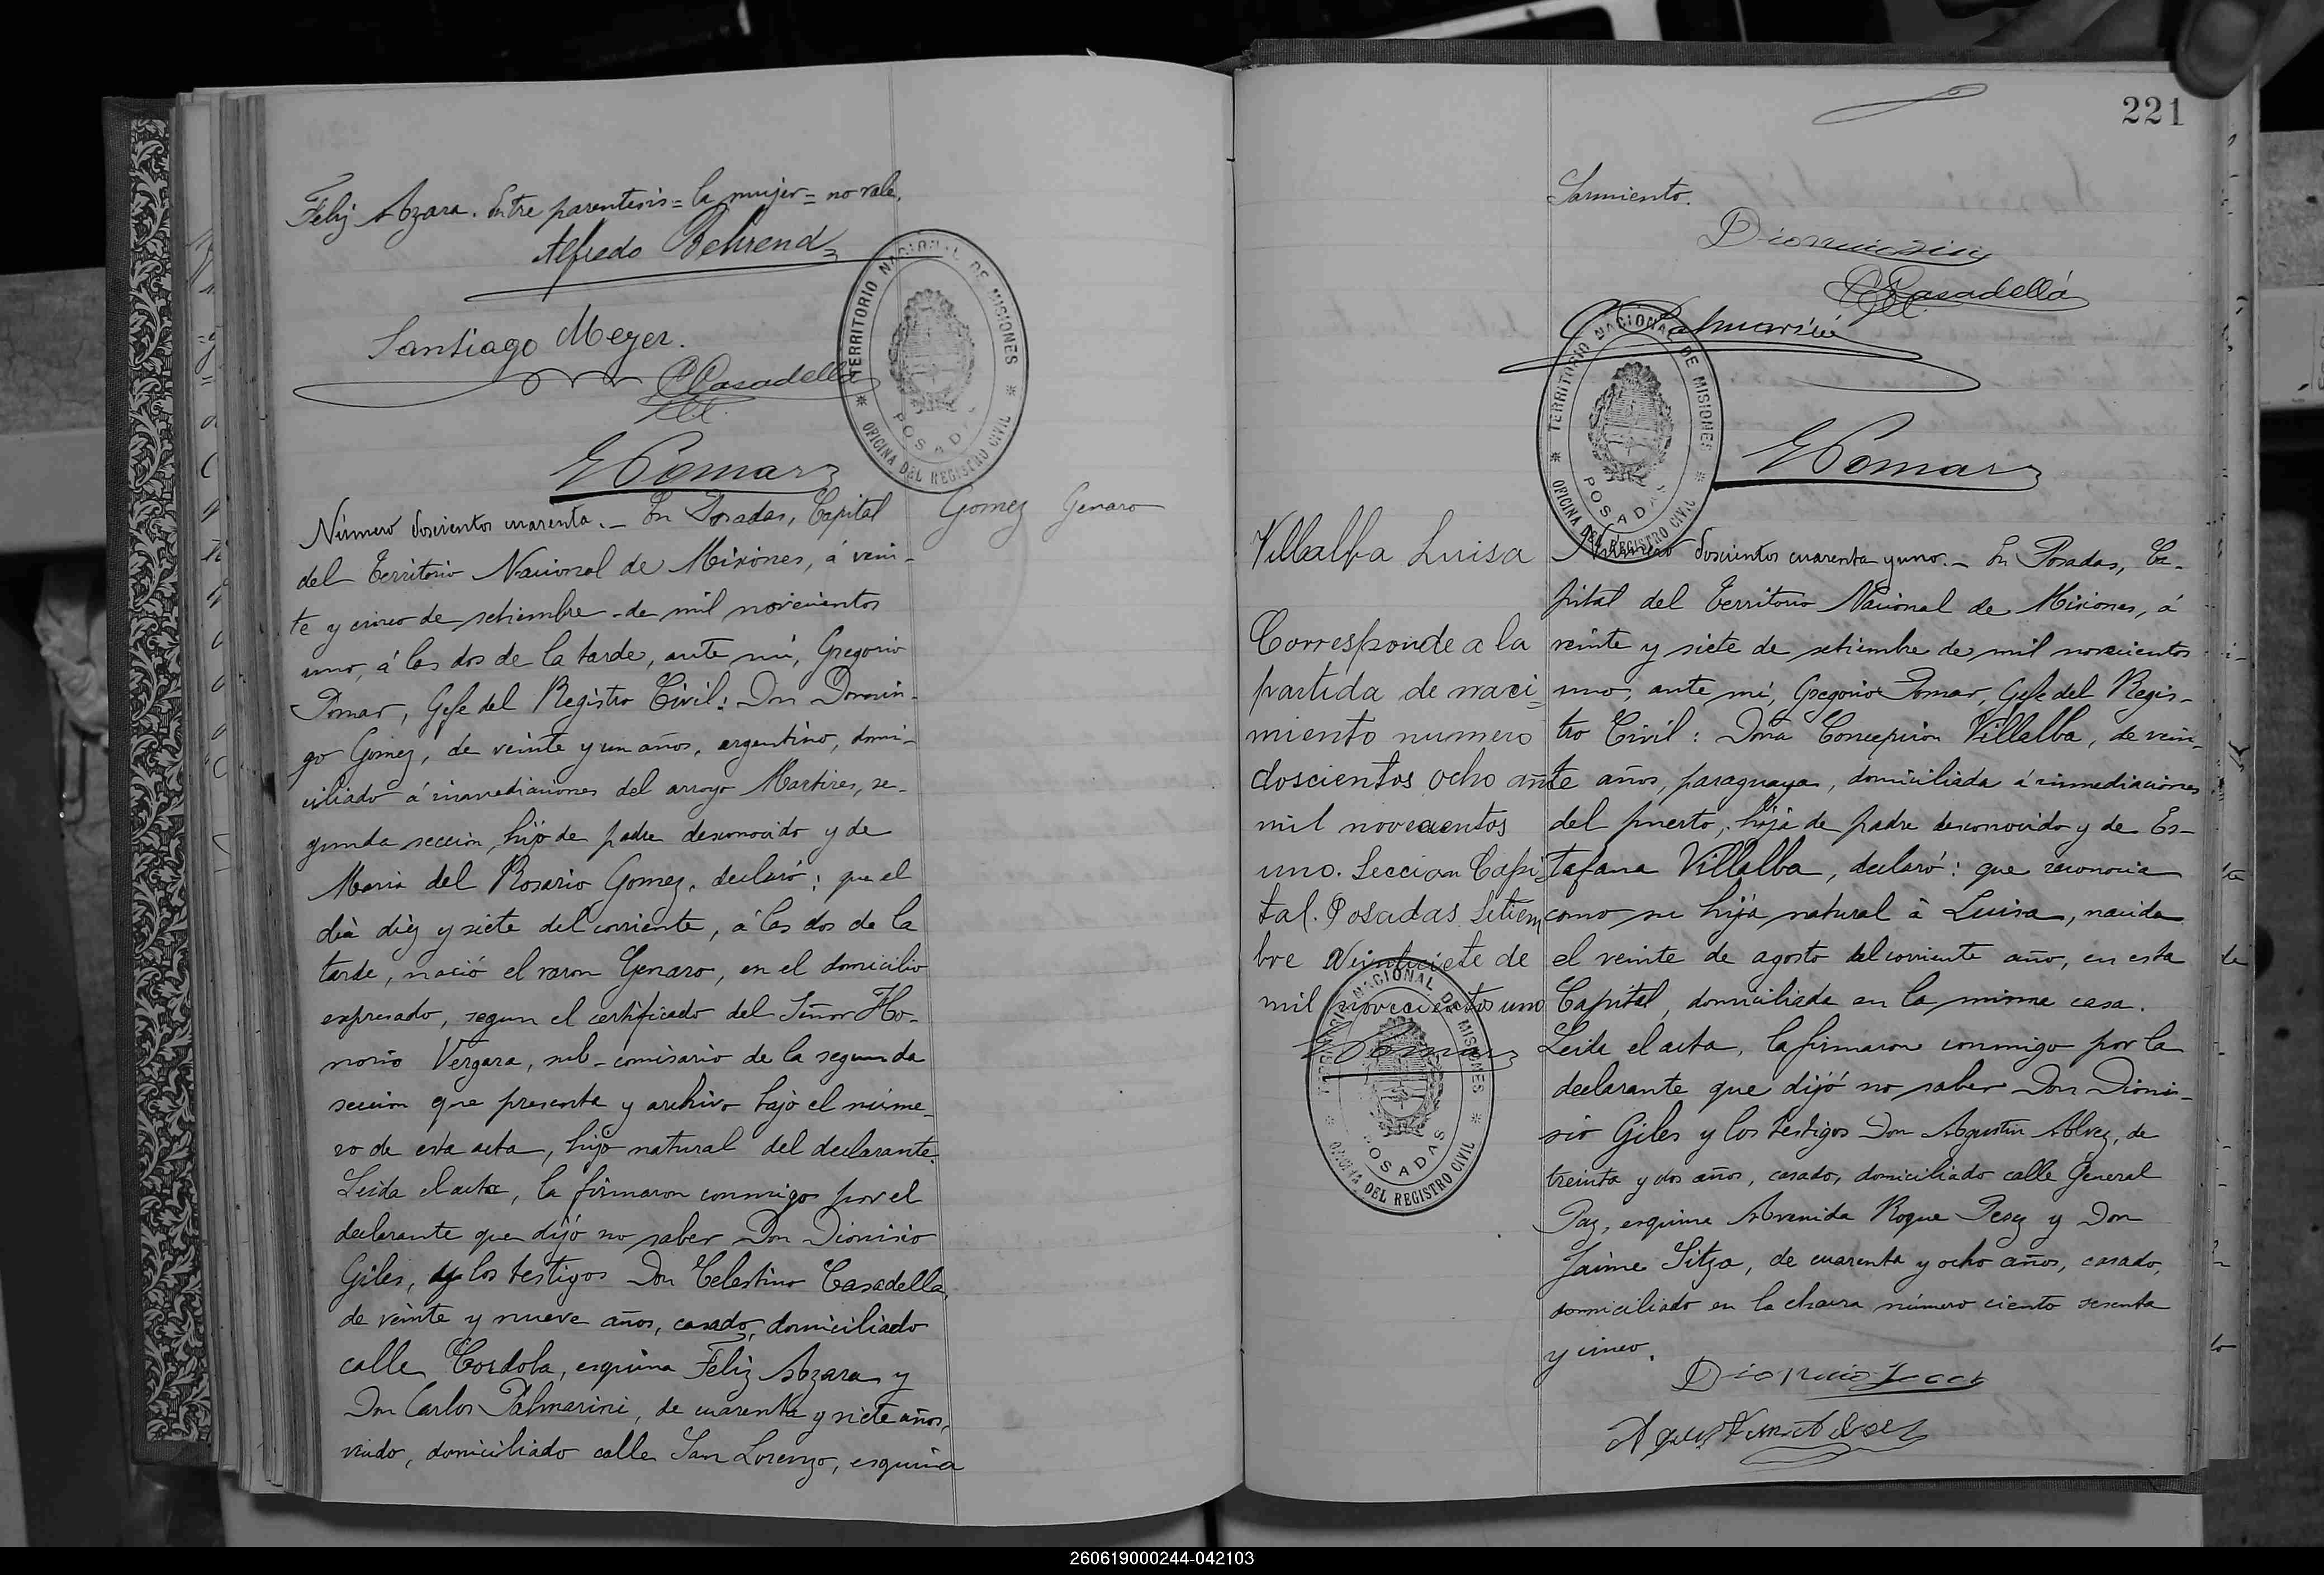 Feliz Abzara. Entre parentesis = la mujer = no vale.
Alfredo Behrend
Santiago Meyer.
CCasadellá
GPomar
TERRITORIO NACIONAL DE MISIONES
POSADAS
OFICINA DEL REGISTRO CIVIL
Gomez Genaro
Número doscientos cuarenta. _ En Posadas, Capital
del Territorio Nacional de Misiones, á vein-
te y cinco de setiembre de mil novecientos
uno, á las dos de la tarde, ante mi, Gregorio
Pomar, Gefe del Registro Civil: Don Domin-
go Gomez, de veinte y un años, argentino, domi-
ciliado á inmediaciones del arroyo Martires, se-
gunda seccion, hijo de padre desconocido y de
Maria del Rosario Gomez, declaró: que el
dia diez y siete del corriente, á las dos de la
tarde, nació el varon Genaro, en el domicilio
expresado, segun el certificado del Señor Ho-
norio Vergara, sub-comisario de la segunda
seccion que presenta y archivo bajo el núme-
ro de esta acta, hijo natural del declarante.
Leida el acta, la firmaron conmigo por el
declarante que dijó no saber Don Dionisio
Giles, y los testigos Don Celestino Casadella,
de veinte y nueve años, casado, domiciliado
calle Cordoba, esquina Feliz Abzara y
Don Carlos Palmarini, de cuarenta y siete años,
viudo, domiciliado calle San Lorenzo, esquina
221
Sarmiento.
CCasadellá
CPalmarini
GPomar
TERRITORIO NACIONAL DE MISIONES
POSADAS
OFICINA DEL REGISTRO CIVIL
Villalba Luisa
Corresponde a la
partida de naci=
miento numero
doscientos ocho año
mil novecientos
uno. Seccion Capi=
tal. Posadas Setiem
bre Veintisiete de
mil novecientos uno
GPomar
TERRITORIO NACIONAL DE MISIONES
POSADAS
OFICINA DEL REGISTRO CIVIL
Número doscientos cuarenta y uno. _ En Posadas, Ca-
pital del Territorio Nacional de Misiones, á
veinte y siete de setiembre de mil novecientos
uno, ante mi, Gregorio Pomar, Gefe del Regis-
tro Civil: Doña Concepcion Villalba, de vein-
te años, paraguaya, domiciliada á inmediaciones
del puerto, hija de padre desconocido y de Es-
tafana Villalba, declaró: que reconocia
como su hija natural á Luisa, nacida
el veinte de agosto del corriente año, en esta
Capital, domiciliada en la misma casa.
Leida el acta, la firmaron conmigo por la
declarante que dijó no saber Don Dioni-
sio Giles y los testigos Don Agustin Alvez, de
treinta y dos años, casado, domiciliado calle General
Paz, esquina Avenida Roque Perez y Don
Jaime Sitza, de cuarenta y ocho años, casado,
domiciliado en la chacra número ciento sesenta
y cinco.
260619000244-042103